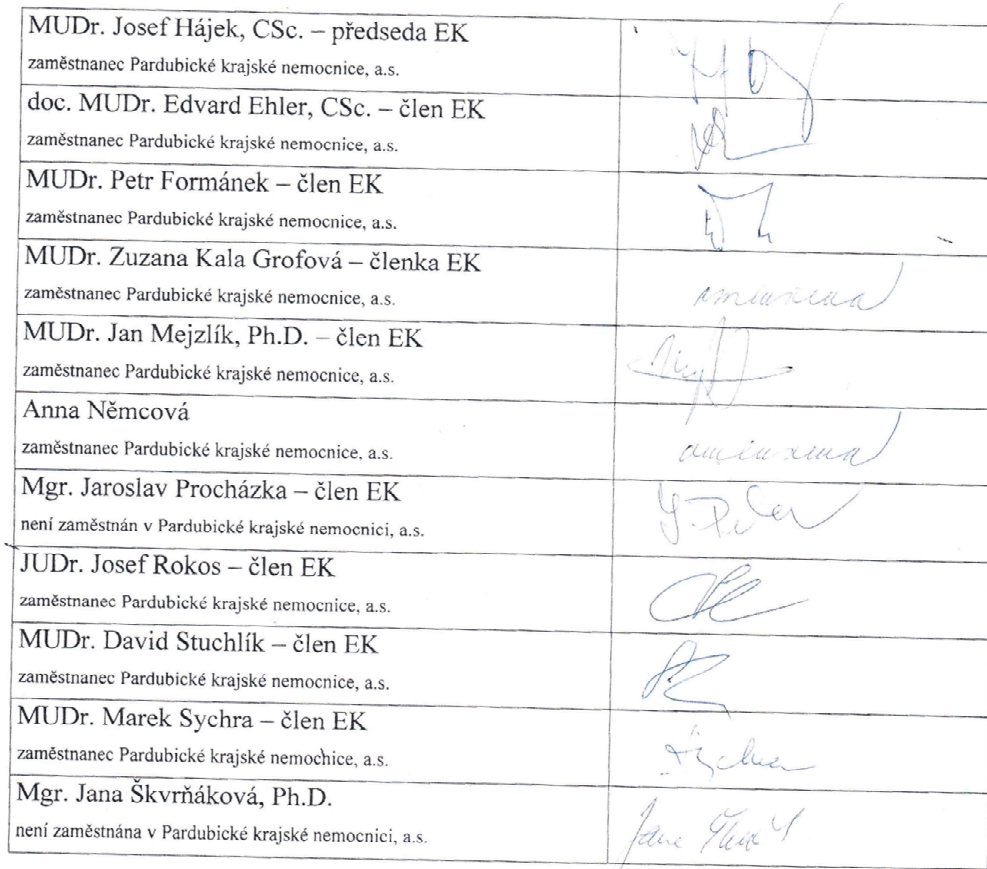 MUDr. Josef Hájek, CSc. – předseda EK
zaměstnanec Pardubické krajské nemocnice, a.s.
doc. MUDr. Edvard Ehler, CSc. – člen EK
zaměstnanec Pardubické krajské nemocnice, a.s.
MUDr. Petr Formánek – člen EK
zaměstnanec Pardubické krajské nemocnice, a.s.
MUDr. Zuzana Kala Grofová – členka EK
omluvena
zaměstnanec Pardubické krajské nemocnice, a.s.
MUDr. Jan Mejzlík, Ph.D. – člen EK
zaměstnanec Pardubické krajské nemocnice, a.s.
Anna Němcová
omluvena
zaměstnanec Pardubické krajské nemocnice, a.s.
Mgr. Jaroslav Procházka – člen EK
není zaměstnán v Pardubické krajské nemocnici, a.s.
JUDr. Josef Rokos – člen EK
zaměstnanec Pardubické krajské nemocnice, a.s.
MUDr. David Stuchlík – člen EK
zaměstnanec Pardubické krajské nemocnice, a.s.
MUDr. Marek Sychra – člen EK
zaměstnanec Pardubické krajské nemocnice, a.s.
Mgr. Jana Škvrňáková, Ph.D.
není zaměstnána v Pardubické krajské nemocnici, a.s.